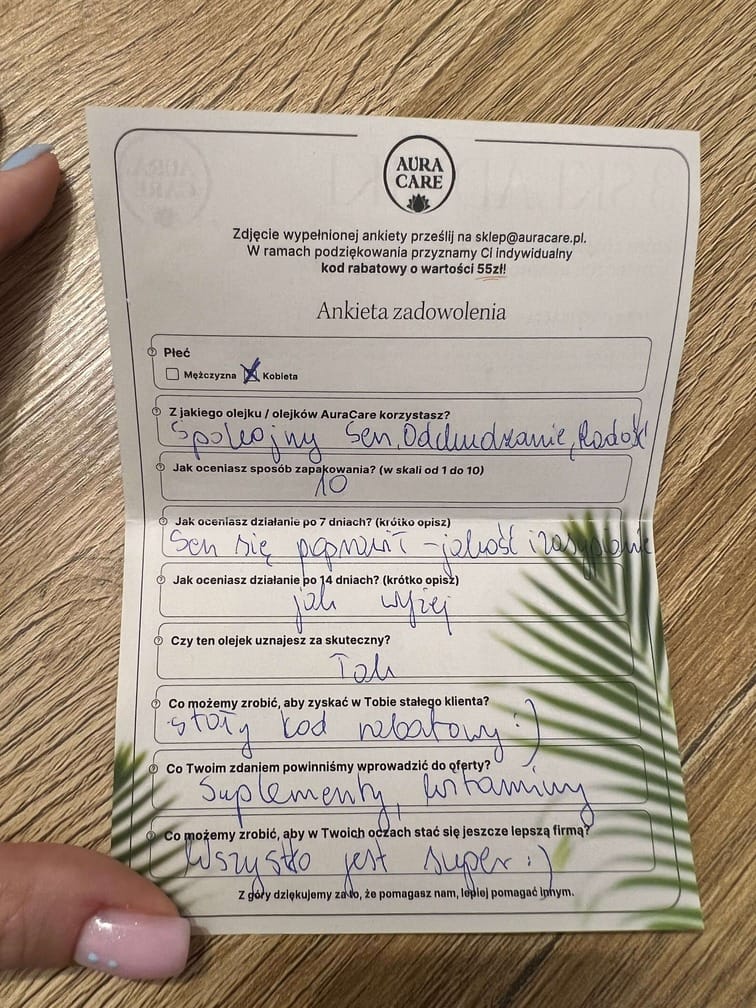 AURA
CARE
Zdjęcie wypełnionej ankiety prześlij na sklep@auracare.pl.
W ramach podziękowania przyznamy Ci indywidualny
kod rabatowy o wartości 55zł!
Ankieta zadowolenia
Płeć
Mężczyzna Kobieta
Z jakiego olejku / olejków AuraCare korzystasz?
Spokojny Sen, Odchudzanie, Radość
Jak oceniasz sposób zapakowania? (w skali od 1 do 10)
10
Jak oceniasz działanie po 7 dniach? (krótko opisz)
Sen się poprawił - jakość i zasypianie
Jak oceniasz działanie po 14 dniach? (krótko opisz)
jak wyżej
Czy ten olejek uznajesz za skuteczny?
Tak
Co możemy zrobić, aby zyskać w Tobie stałego klienta?
stały kod rabatowy :)
Co Twoim zdaniem powinniśmy wprowadzić do oferty?
Suplementy, witaminy
Co możemy zrobić, aby w Twoich oczach stać się jeszcze lepszą firmą?
Wszystko jest super :)
Z góry dziękujemy za to, że pomagasz nam, lepiej pomagać innym.